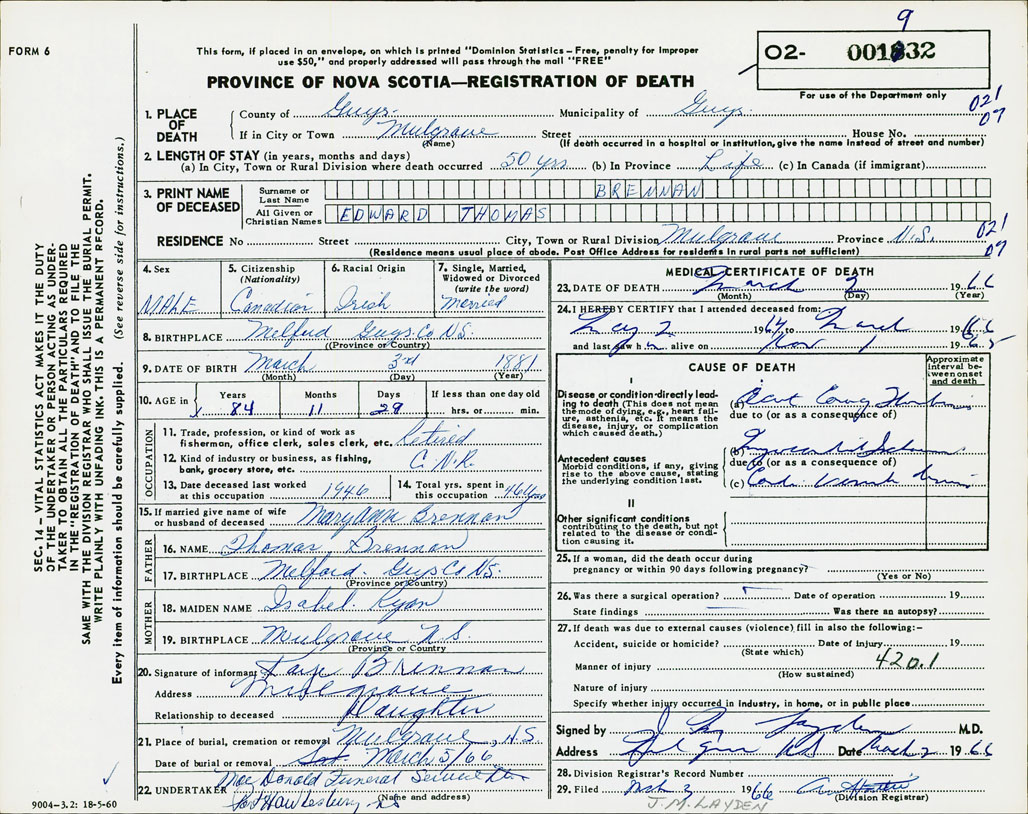 9
FORM 6
This form, if placed in an envelope, on which is printed "Dominion Statistics – Free, penalty for improper
use $50," and properly addressed will pass through the mail "FREE"
PROVINCE OF NOVA SCOTIA—REGISTRATION OF DEATH
02- 001832
For use of the Department only
021
07
1. PLACE OF DEATH
County of Guys. Municipality of Guys.
If in City or Town Mulgrave Street House No.
(Name) (If death occurred in a hospital or institution, give the name instead of street and number)
2. LENGTH OF STAY (in years, months and days)
(a) In City, Town or Rural Division where death occurred 50 yrs (b) In Province Life (c) In Canada (if immigrant)
3. PRINT NAME OF DECEASED
Surname or Last Name BRENNAN
All Given or Christian Names EDWARD THOMAS
RESIDENCE No Street City, Town or Rural Division Mulgrave Province N.S.
021
07
(Residence means usual place of abode. Post Office Address for residents in rural parts not sufficient)
4. Sex MALE
5. Citizenship (Nationality) Canadian
6. Racial Origin Irish
7. Single, Married, Widowed or Divorced (write the word) Married
8. BIRTHPLACE Melford Guys. Co N.S.
(Province or Country)
9. DATE OF BIRTH March 3rd 1881
(Month) (Day) (Year)
10. AGE in Years 84 Months 11 Days 29 If less than one day old hrs. or min.
OCCUPATION
11. Trade, profession, or kind of work as
fisherman, office clerk, sales clerk, etc. Retired
12. Kind of industry or business, as fishing,
bank, grocery store, etc. C.N.R.
13. Date deceased last worked at this occupation 1946
14. Total yrs. spent in this occupation 46 yrs
15. If married give name of wife or husband of deceased Mary Ann Brennan
FATHER
16. NAME Thomas Brennan
17. BIRTHPLACE Melford. Guys Co N.S.
(Province or Country)
MOTHER
18. MAIDEN NAME Isabel. Ryan
19. BIRTHPLACE Mulgrave N.S.
(Province or Country)
20. Signature of informant Faye Brennan
Address Mulgrave
Relationship to deceased Daughter
21. Place of burial, cremation or removal Mulgrave, N.S.
Date of burial or removal Sat. March 5/66
22. UNDERTAKER MacDonald Funeral Service
Port Hawkesbury NS
(Name and address)
MEDICAL CERTIFICATE OF DEATH
23. DATE OF DEATH March 2 1966
(Month) (Day) (Year)
24. I HEREBY CERTIFY that I attended deceased from:
1964 to March 1966
and last saw h alive on Nov 1 1965
CAUSE OF DEATH
Approximate interval between onset and death
I
Disease or condition directly leading to death (This does not mean the mode of dying, e.g., heart failure, asthenia, etc. It means the disease, injury, or complication which caused death.)
(a)
due to (or as a consequence of)
Antecedent causes
Morbid conditions, if any, giving rise to the above cause, stating the underlying condition last.
(b)
due to (or as a consequence of)
(c)
II
Other significant conditions contributing to the death, but not related to the disease or condition causing it.
25. If a woman, did the death occur during
pregnancy or within 90 days following pregnancy?
(Yes or No)
26. Was there a surgical operation? Date of operation 19
State findings Was there an autopsy?
27. If death was due to external causes (violence) fill in also the following:-
Accident, suicide or homicide? Date of injury 19
(State which)
Manner of injury 420.1
(How sustained)
Nature of injury
Specify whether injury occurred in industry, in home, or in public place
Signed by Layden M.D.
Address NS Date March 2 1966
28. Division Registrar's Record Number
29. Filed Mch 3 1966
(Division Registrar)
J.M. LAYDEN
SEC. 14 – VITAL STATISTICS ACT MAKES IT THE DUTY
OF THE UNDERTAKER OR PERSON ACTING AS UNDER-
TAKER TO OBTAIN ALL THE PARTICULARS REQUIRED
IN THE "REGISTRATION OF DEATH" AND TO FILE THE
SAME WITH THE DIVISION REGISTRAR WHO SHALL ISSUE THE BURIAL PERMIT.
WRITE PLAINLY WITH UNFADING INK. THIS IS A PERMANENT RECORD.
Every item of information should be carefully supplied. (See reverse side for instructions.)
9004–3.2: 18-5-60